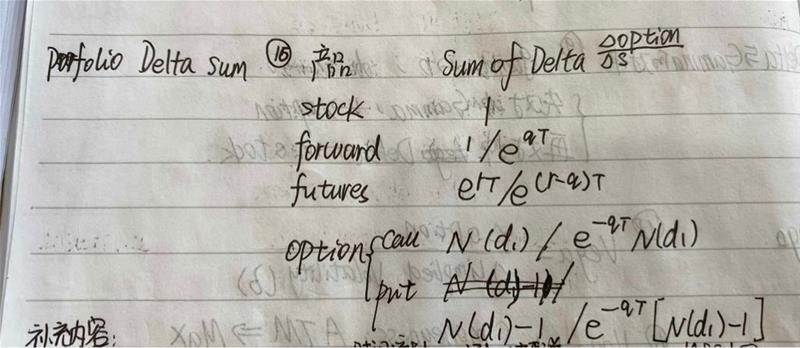 Portfolio Delta sum ⑮ 产品 Sum of Delta Δoption/ΔS
stock 1
forward 1/e^{qT}
futures e^{rT}/e^{(r-q)T}
option { call N(d₁) / e^{-qT}N(d₁)
put N(d₁)-1)/
N(d₁)-1 / e^{-qT}[N(d₁)-1]
补充内容: